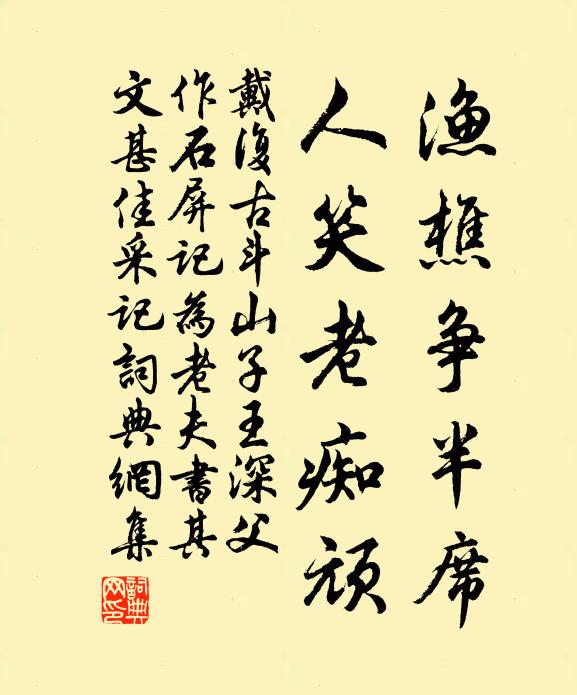 漁樵争半席
人笑老痴頑
戴復古斗山子王深父
作石屏記為老夫書其
文甚佳采記詞典網集
詞典网印